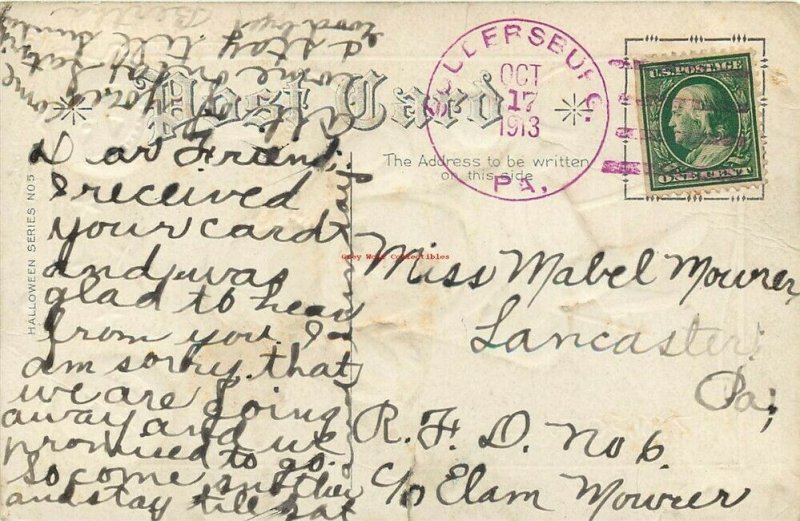 Post Card
MILLERSBURG,
OCT
17
1913
PA.
U.S. POSTAGE
ONE CENT
The Address to be written
on this side
HALLOWEEN SERIES NO 5
Grey Wolf Collectibles
Dear Friend;
I received
your card
and was
glad to hear
from you. I
am sorry that
we are going
away and we
promised to go.
So come another
and stay till sat
Miss Mabel Mowrer,
Lancaster
Pa;
R. F. D. No 6.
c/o Elam Mowrer
come
and stay till
good bye
Bertha